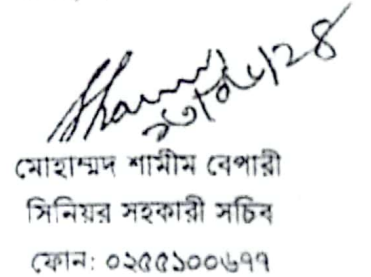 মোহাম্মদ শামীম বেপারী
সিনিয়র সহকারী সচিব
ফোন: ০২৫৫১০০৬৭৭